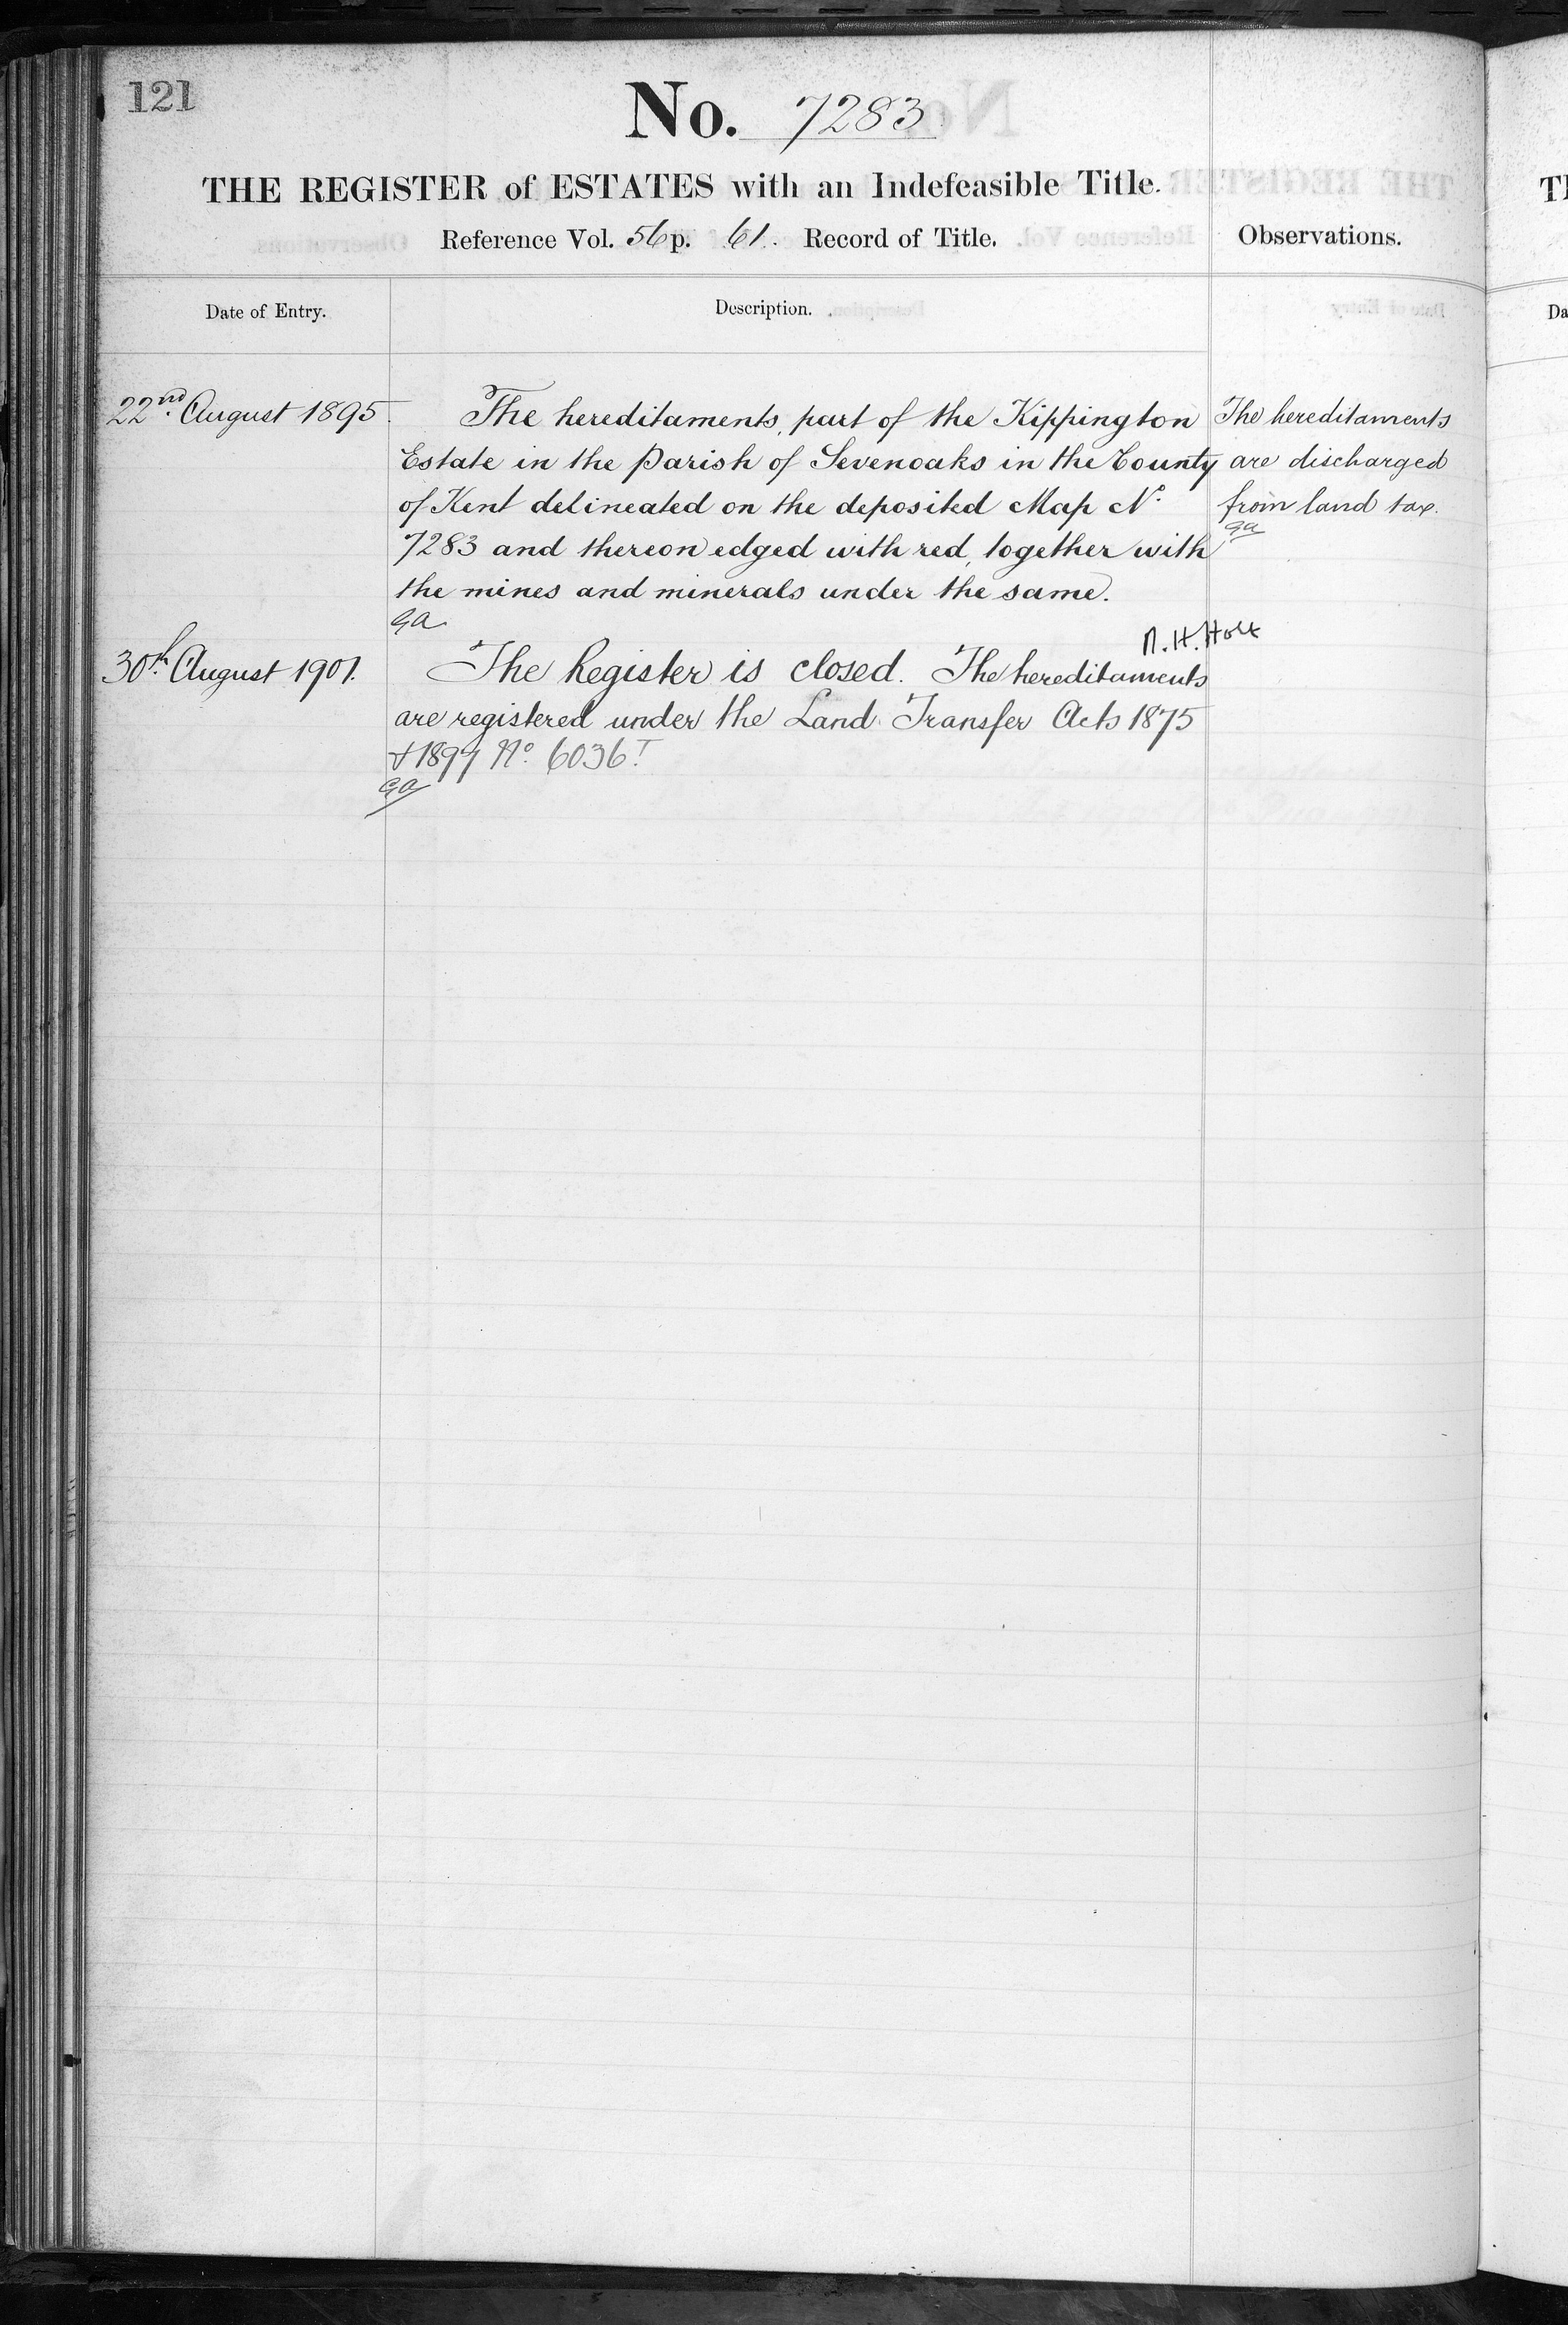 121
No. 7283
THE REGISTER of ESTATES with an Indefeasible Title.
Reference Vol. 56 p. 61. Record of Title.
Observations.
Date of Entry.
Description.
22nd August 1895.
The hereditaments, part of the Kippington
Estate in the Parish of Sevenoaks in the County
of Kent delineated on the deposited Map No.
7283 and thereon edged with red, together with
the mines and minerals under the same.
The hereditaments
are discharged
from land tax.
30th August 1901.
The Register is closed. The hereditaments
are registered under the Land Transfer Acts 1875
& 1897 No. 6036T